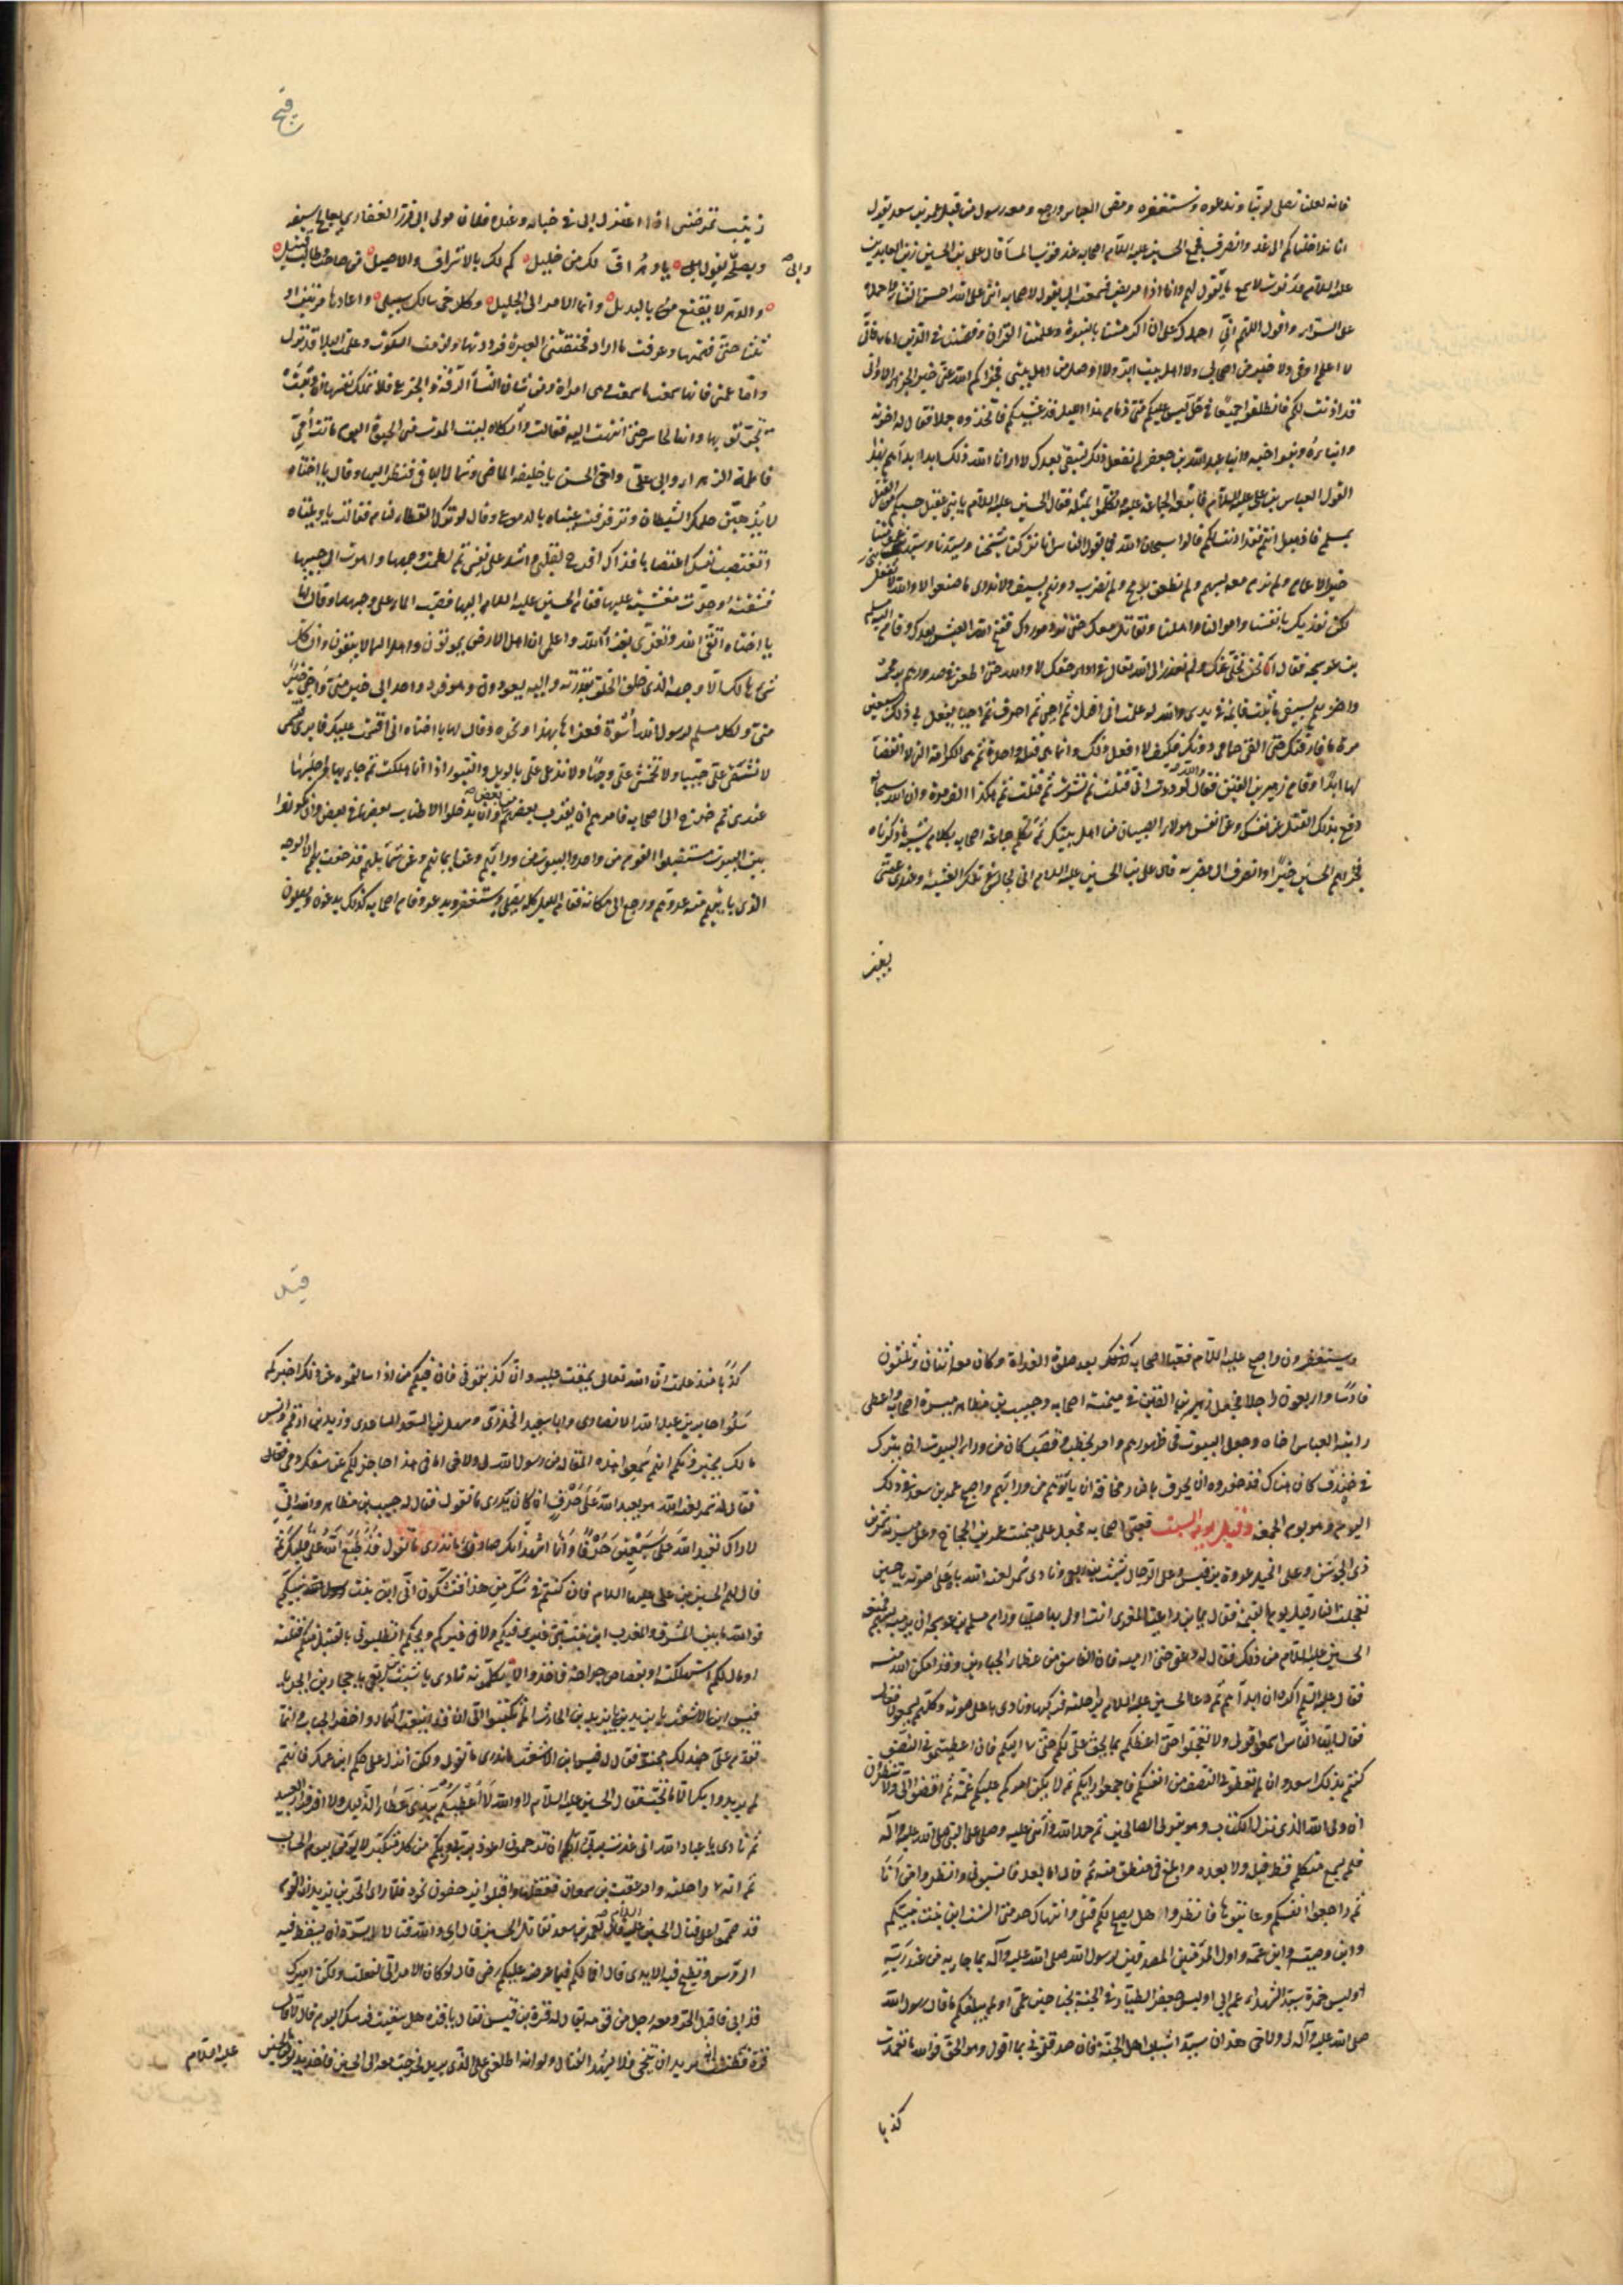 فانه لعلنا نصلى لربنا وندعوه ونستغفره ومضى العباس ورجع ومعه رسول من قبل عمر بن سعد يقول
انا قد اجلناكم الى غد وانصرف فجمع الحسين عليه السلام اصحابه عند قرب المسآ قال على بن الحسين زين العابدين
عليه السلام فدنوت لاسمع ما يقول لهم وانا اذ ذا مريض فسمعت ابى يقول لاصحابه اثنى على الله احسن الثناء واحمده
على السراء واقول اللهم انى احمدك على ان اكرمتنا بالنبوة وعلمتنا القران وفهمتنا فى الدين اما بعد فانى
لا اعلم اوفى ولا خير من اصحابى ولا اهل بيت ابر ولا اوصل من اهل بيتى فجزاكم الله عنى خير الجزاء
قد اذنت لكم فانطلقوا جميعا فى حل ليس عليكم منى ذمام هذا الليل قد غشيكم فاتخذوه جملا فقال له اخوته
وابناءه وبنو اخيه وابناء عبد الله بن جعفر لم نفعل ذلك لنبقى بعدك لا ارانا الله ذلك ابدا بدأهم بهذا
القول العباس بن على عليه السلام واتبعه الجماعة عليه وتكلموا بمثله فقال الحسين عليه السلام يا بنى عقيل حسبكم من القتل
بمسلم فاذهبوا انتم فقد اذنت لكم قالوا سبحان الله فما يقول الناس انا تركنا شيخنا وسيدنا وبنى عمومتنا
خير الاعمام ولم نرم معه بسهم ولم نطعن برمح ولم نضرب دونهم بسيف ولا ندرى ما صنعوا لا والله لا نفعل
لكن نفديك بانفسنا واموالنا واهلنا ونقاتل معك حتى نرد موردك فقبح الله العيش بعدك وقام اليه مسلم
بن عوسجه فقال انحن نخلى عنك ولم نعذر الى الله تعالى فى اداء حقك لا والله حتى اطعن فى صدورهم برمحى
واضربهم بسيفى ما ثبت قائمه فى يدى والله لو علمت انى اقتل ثم احيى ثم احرق ثم احيا يفعل بى ذلك سبعين
مرة ما فارقتك حتى القى حمامى دونك فكيف لا افعل ذلك وانما هى قتلة واحدة ثم هى الكرامة التى لا انقضآ
لها ابدا وقام زهير بن القين فقال والله لوددت انى قتلت ثم نشرت ثم قتلت ثم هكذا الف مرة وان الله سبحانه
دفع بذلك القتل عن نفسك وعن انفس هولاء الصبيان من اهل بيتك ثم تكلم جماعة اصحابه بكلام يشبه ما ذكرناه
فجزاهم الحسين خيرا وانصرف الى مضربه قال على بن الحسين عليه السلام انى لجالس فى تلك العشية وعندى عمتى
فيح
زينب تمرضنى اذا اعتزل ابى فى خباله وعنده فلان مولى ابى ذر الغفارى يعالج سيفه
وابى ويصلحه يقول ابى يا دهر اف لك من خليل كم لك بالاشراق والاصيل من صاحب وطالب قتيل
والدهر لا يقنع بالبديل وانما الامر الى الجليل وكل حى سالك سبيلى واعادها مرتين او
ثلثا حتى فهمتها وعرفت ما اراد فخنقتنى العبرة فرددتها ولزمت السكوت وعلمت البلا قد نزل
واما عمتى فانها سمعت ما سمعت وهى امراة ومن شان النسآ الرقة والجزع فلا تملك نفسها ان وثبت
تجر ثوبها وانها لحاسر حتى انتهت اليه فقالت واثكلاه ليت الموت الحيوة اليوم ماتت امى
فاطمة الزهراء وابى على واخى الحسن يا خليفه الماضى وثمال الباقى فنظر اليها وقال يا اختاه
لا يذهبن حلمك الشيطان وترقرقت عيناه بالدموع وقال لو ترك القطا لنام فقالت يا ويلتاه
افتغتصب نفسك اغتصابا فذاك اقرح لقلبى واشد على نفسى ثم لطمت وجهها واهوت الى جيبها
فشقته وخرت مغشيا عليها فقام الحسين عليه السلام اليها فصب الماء على وجهها وقال لها
يا اختاه اتقى الله وتعزى بعزاء الله واعلمى ان اهل الارض يموتون واهل السما لا يبقون وان كل
شى هالك الا وجهه الذى خلق الخلق بقدرته واليه يعودون وهو فرد واحد ابى خير منى واخى خير
منى ولكل مسلم برسول الله اسوة فعزاها بهذا ونحوه وقال لها يا اختاه انى اقسمت عليك فابرى قسمى
لا تشقى على جيبا ولا تخمشى على وجها ولا تدعى على بالويل والثبور اذا انا هلكت ثم جاء بها فاجلسها
عندى ثم خرج الى اصحابه فامرهم ان يقرب بعضهم من بعض وان يدخلوا الاطناب بعضها فى بعض وان يكونوا
بين البيوت مستقبلوا القوم من واحد والبيوت من ورائهم وعن ايمانهم وعن شمائلهم قد حفت بهم الا الوجه
الذى ياتيهم منه عدوهم ورجع الى مكانه فقام الليل كله يصلى ويستغفر ويدعو وقام اصحابه كذلك يدعون ويصلون
ويستغفرون واصبح عليه السلام فعبا اصحابه بعد صلوة الغداة وكان معه اثنان وثلثون
فارسا واربعون راجلا فجعل زهير بن القين فى ميمنة اصحابه وحبيب بن مظاهر ميسرة اصحابه واعطى
رايته العباس اخاه وجعل البيوت فى ظهورهم وامر بحطب وقصب كان من وراء البيوت ان يترك
فى خندق كان هناك قد حفروه وان يحرق بالنار مخافة ان ياتوهم من ورائهم واصبح عمر بن سعد فى ذلك
اليوم وهو يوم الجمعه وقيل يوم السبت فعبى اصحابه فجعل على ميمنته عمرو بن الحجاج وعلى ميسرته شمر بن
ذى الجوشن وعلى الخيل عروة بن قيس وعلى الرجال شبث بن ربعى ونادى شمر لعنه الله باعلى صوته يا حسين
تعجلت بالنار قبل يوم القيمة فقال يا بن راعية المعزى انت اولى بها صليا ورام مسلم بن عوسجه ان يرميه بسهم فمنعه
الحسين عليه السلام من ذلك فقال له دعنى حتى ارميه فان الفاسق من عظماء الجبارين وقد امكن الله منه
فقال عليه السلم اكره ان ابدأهم ثم دعا الحسين عليه السلام براحلته فركبها ونادى باعلى صوته وكلهم يسمعون
فقال ايها الناس اسمعوا قولى ولا تعجلوا حتى اعظكم بما يحق على لكم حتى اليكم فان اعطيتمونى النصف
كنتم بذلك اسعد وان لم تعطونى النصف من انفسكم فاجمعوا رايكم ثم لا يكن امركم عليكم غمة ثم اقضوا الى ولا تنظرون
ان ولى الله الذى نزل الكتاب وهو يتولى الصالحين ثم حمد الله واثنى عليه وصلى على النبى صلى الله عليه وآله
فلم يسمع متكلم قط قبله ولا بعده ابلغ فى منطق منه ثم قال اما بعد فانسبونى وانظروا من انا
ثم راجعوا انفسكم وعاتبوها فانظروا هل يصلح لكم قتلى وانتهاك حرمتى الست ابن بنت نبيكم
وابن وصيه وابن عمه واول المومنين المصدقين لرسول الله صلى الله عليه وآله بما جاء به من عند ربه
اوليس حمزة سيد الشهداء عم ابى اوليس جعفر الطيار فى الجنة بجناحين عمى اولم يبلغكم ما قال رسول الله
صلى الله عليه وآله لى ولاخى هذان سيدا شباب اهل الجنة فان صدقتمونى بما اقول وهو الحق فوالله ما تعمدت
كذبا
كذبا منذ علمت ان الله تعالى يمقت عليه وان كذبتمونى فان فيكم من اذا سالتموه عن ذلك اخبركم
سلوا جابر بن عبد الله الانصارى وابا سعيد الخدرى وسهل بن السعد الساعدى وزيد بن ارقم وانس
مالك يخبرونكم انهم سمعوا هذه المقالة من رسول الله لى ولاخى اما فى هذا حاجز لكم عن سفك دمى فقال
فقال له شمر لعنه الله هو يعبد الله على حرف ان كان يدرى ما تقول فقال له حبيب بن مظاهر والله انى
لاراك تعبد الله على سبعين حرفا وانا اشهد انك صادق ما تدرى ما تقول قد طبع الله على قلبك ثم
قال لهم الحسين بن على عليهما السلام فان كنتم فى شك من هذا افتشكون انى ابن بنت نبيكم
فوالله ما بين المشرق والمغرب ابن بنت نبى غيرى فيكم ولا فى غيركم ويحكم اتطلبونى بقتيل منكم قتلته
او مال لكم استهلكته او بقصاص جراحة فاخذوا لا يكلمونه فنادى يا شبث بن ربعى يا حجار بن ابجر يا
قيس ابن الاشعث يا يزيد بن الحارث الم تكتبوا الى ان قد اينعت الثمار واخضر الجناب وانما
تقدم على جند لك مجند فقال له قيس ابن الاشعث ما ندرى ما تقول ولكن انزل على حكم ابن عمك فانهم
لم يريدوا بك الا ما تحب فقال الحسين عليه السلام لا والله لا اعطيكم بيدى عطاء الذليل ولا اقر اقرار العبيد
ثم نادى يا عباد الله انى عذت بربى وربكم ان ترجمون اعوذ بربى وربكم من كل متكبر لا يومن بيوم الحساب
ثم انه اناخ راحلته وامر عقبة بن سمعان فعقلها واقبلوا يزحفون نحوه فلما راى الحر بن يزيد ان القوم
قد صمموا على قتال الحسين عليه السلام قال لعمر بن سعد تقاتل الحسين قال اى والله قتالا ايسره ان يسقط فيه
الروس وتطيح فيه الايدى قال افما لكم فيما عرضه عليكم رضى قال لو كان الامر الى لفعلت ولكن اميرك
قد ابى فاقبل الحر ومعه رجل من قومه يقال له قرة بن قيس فقال يا قره هل سقيت فرسك اليوم قال لا قال
قرة فظننت انه يريد ان يتنحى فلا يشهد القتال ولو انه اطلعنى على الذى يريد لخرجت معه الى الحسين فاخذ يدنو من الحسين
عليه السلام